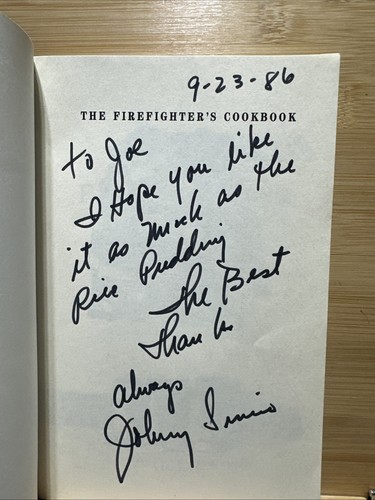 9-23-86
THE FIREFIGHTER'S COOKBOOK
To Joe
I Hope you like
it as Much as the
Rice Pudding
The Best
Thanks
always
Johnny